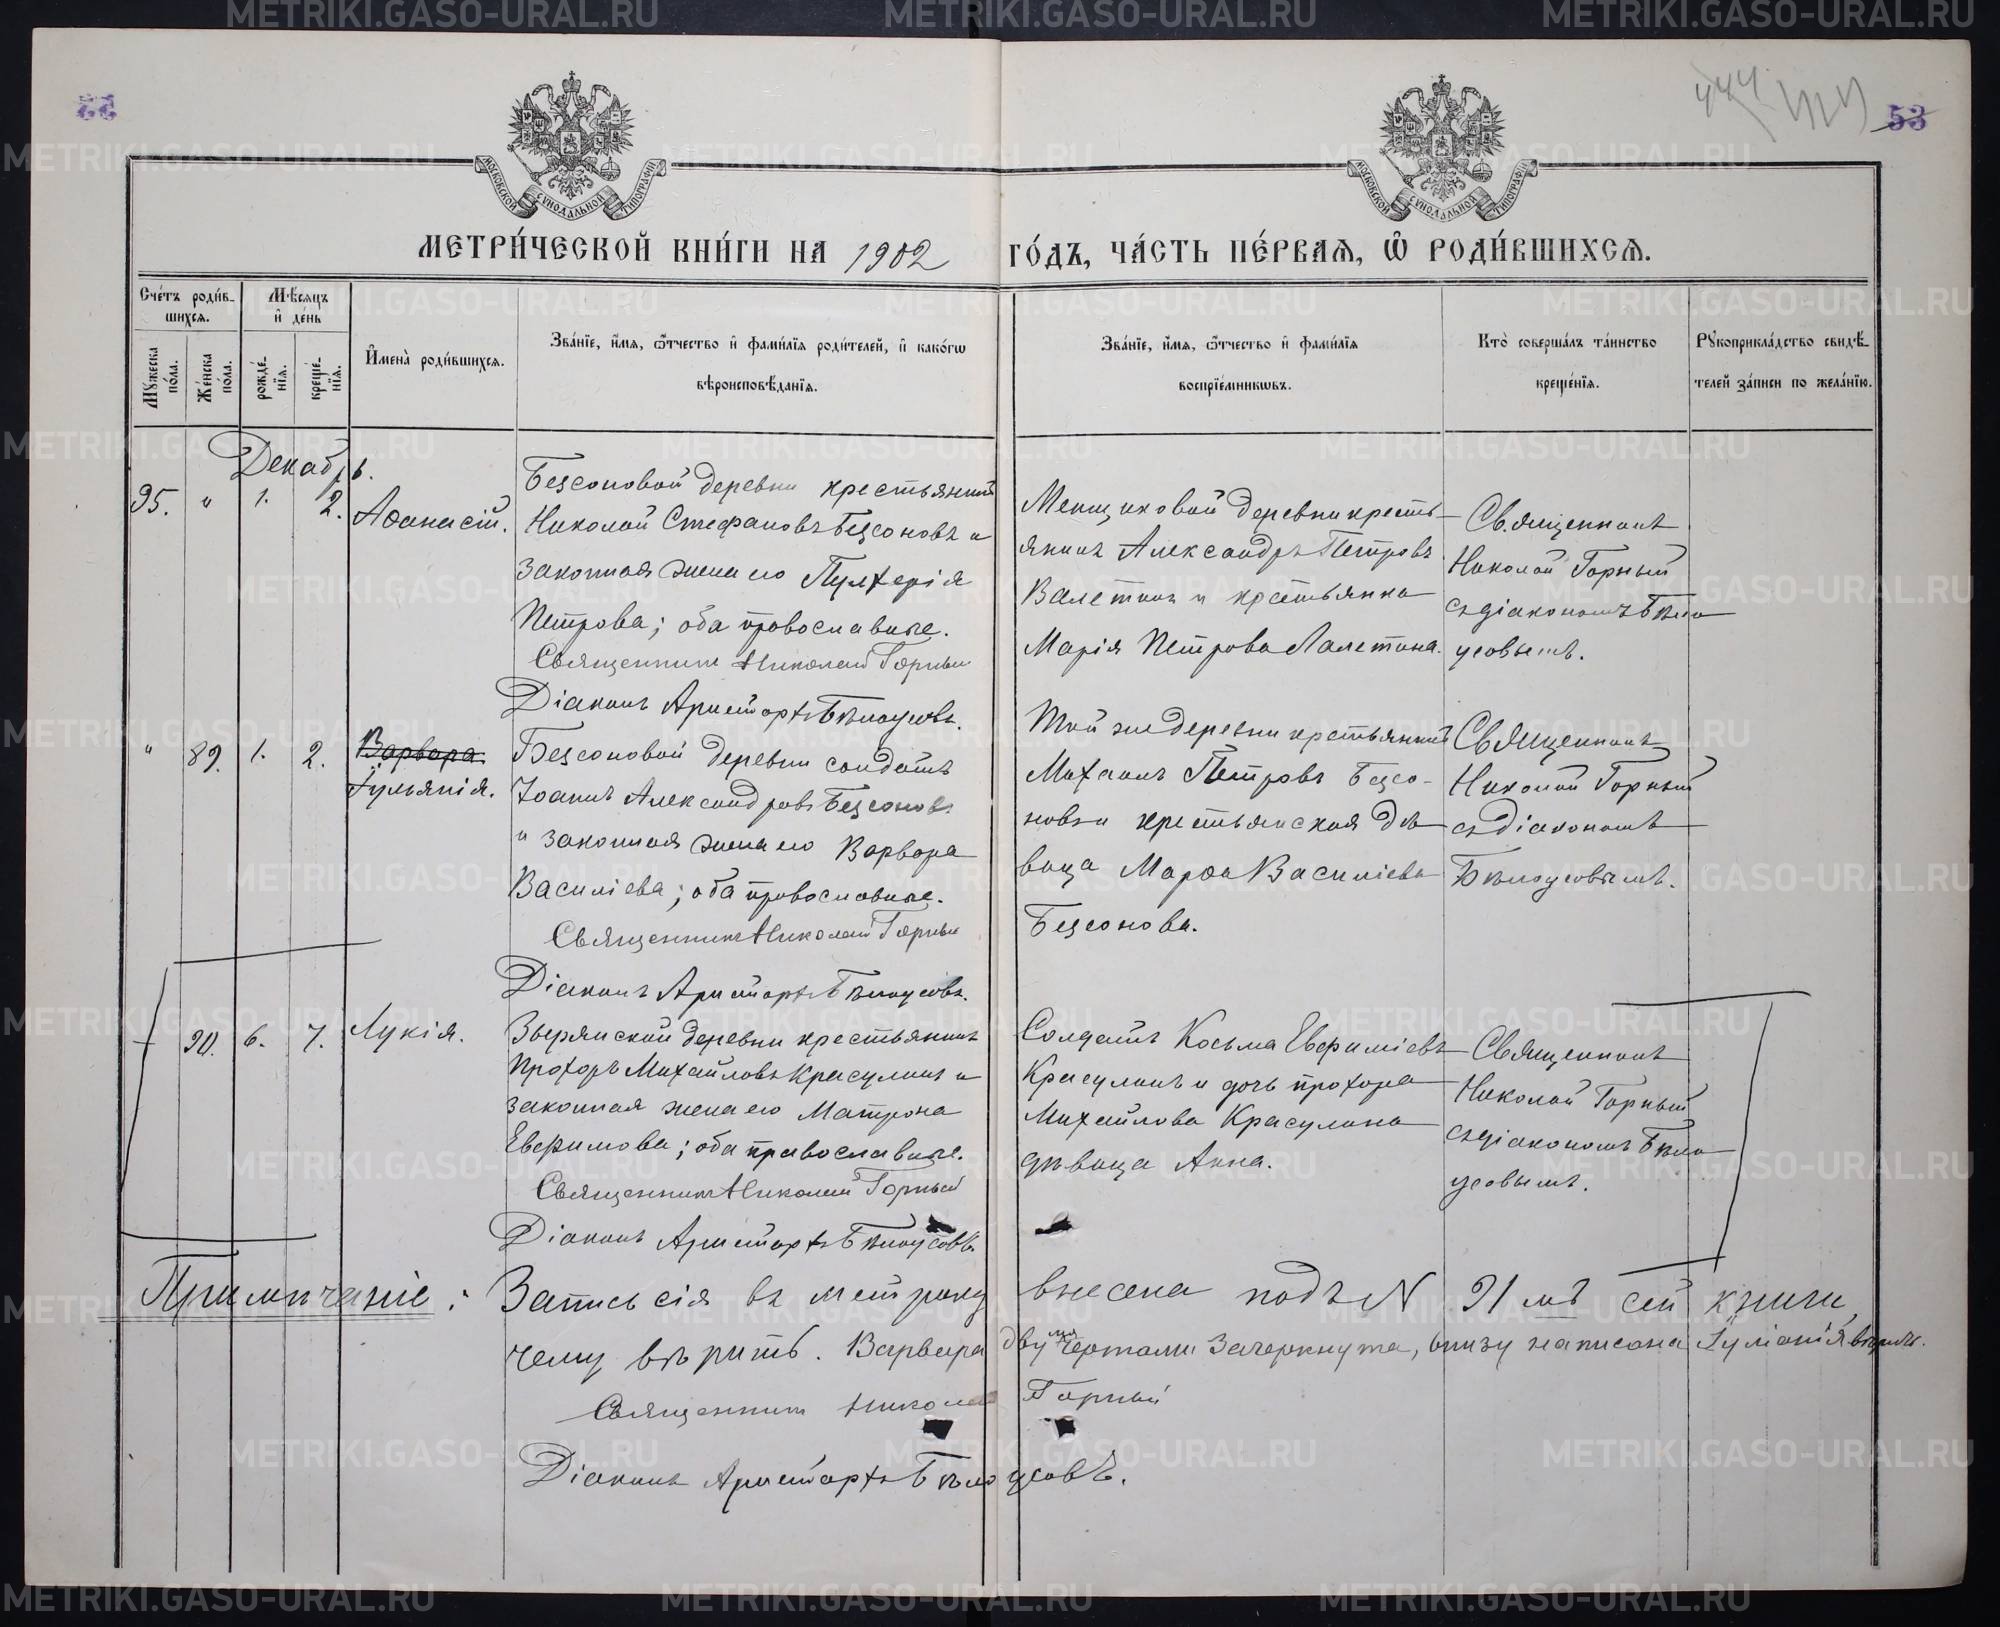 53
МЕТРИ́ЧЕСКОЙ КНИ́ГИ НА 1902 ГО́ДЪ, ЧА́СТЬ ПЕ́РВАЯ, Ѿ РОДИ́ВШИХСЯ.
МОСКОВСКОЙ СѴНОДАЛЬНОЙ ТИПОГРАФІИ
МОСКОВСКОЙ СѴНОДАЛЬНОЙ ТИПОГРАФІИ
Сче́тъ роди́в-
шихся.
Мѣ́сяцъ
и҆ де́нь
Мꙋ́жеска по́ла.
Же́нска по́ла.
рожде́-
нїя.
креще́-
нїя.
И҆мена̀ роди́вшихся.
Зва́нїе, и҆́мя, ѻ҆́тчество и҆ фами́лїя роди́телей, и҆ како́гѡ
вѣроисповѣ́данїя.
Зва́нїе, и҆́мя, ѻ҆́тчество и҆ фами́лїя
воспрїе́мникѡвъ.
Кто̀ соверша́лъ та́инство
креще́нїя.
Рꙋкоприкла́дство свидѣ́-
телей за́писи по жела́нїю.
Декабрь.
95. " 1. 2. Аѳанасій.
Безсоновой деревни крестьянинъ
Николай Стефановъ Безсоновъ и
законная жена его Пулхерія
Петрова; оба православные.
Священникъ Николай Горный
Діаконъ Аристархъ Бѣлоусовъ.
Менщиковой деревни кресть-
янинъ Александръ Петровъ
Валетинъ и крестьянка
Марія Петрова Лалетина.
Священникъ
Николай Горный
съ діакономъ Бѣло
усовымъ.
" 89. 1. 2. Варвара
Іульянія.
Безсоновой деревни солдатъ
Іоаннъ Александровъ Безсоновъ
и законная жена его Варвара
Василіева; оба православные.
Священникъ Николай Горный
Діаконъ Аристархъ Бѣлоусовъ.
Той же деревни крестьянинъ
Михаилъ Петровъ Безсо-
новъ и крестьянская дѣ
вица Марѳа Василіева
Безсонова.
Священникъ
Николай Горный
съ діакономъ
Бѣлоусовымъ.
90. 6. 7. Лукія.
Зырянской деревни крестьянинъ
Прохоръ Михайловъ Красулинъ и
законная жена его Матрона
Евфимова; оба православные.
Священникъ Николай Горный
Діаконъ Аристархъ Бѣлоусовъ.
Солдатъ Косьма Евфиміевъ
Красулинъ и дочь Прохора
Михайлова Красулина
дѣвица Анна.
Священникъ
Николай Горный
съ діакономъ Бѣло
усовымъ.
Примѣчаніе: Запись сія въ метрику внесена подъ N 91 мъ сей книги,
чему вѣрить. Варвара двумя чертами зачеркнута, внизу написана Іуліанія вѣрить.
Священникъ Николай Горный
Діаконъ Аристархъ Бѣлоусовъ.
METRIKI.GASO-URAL.RU